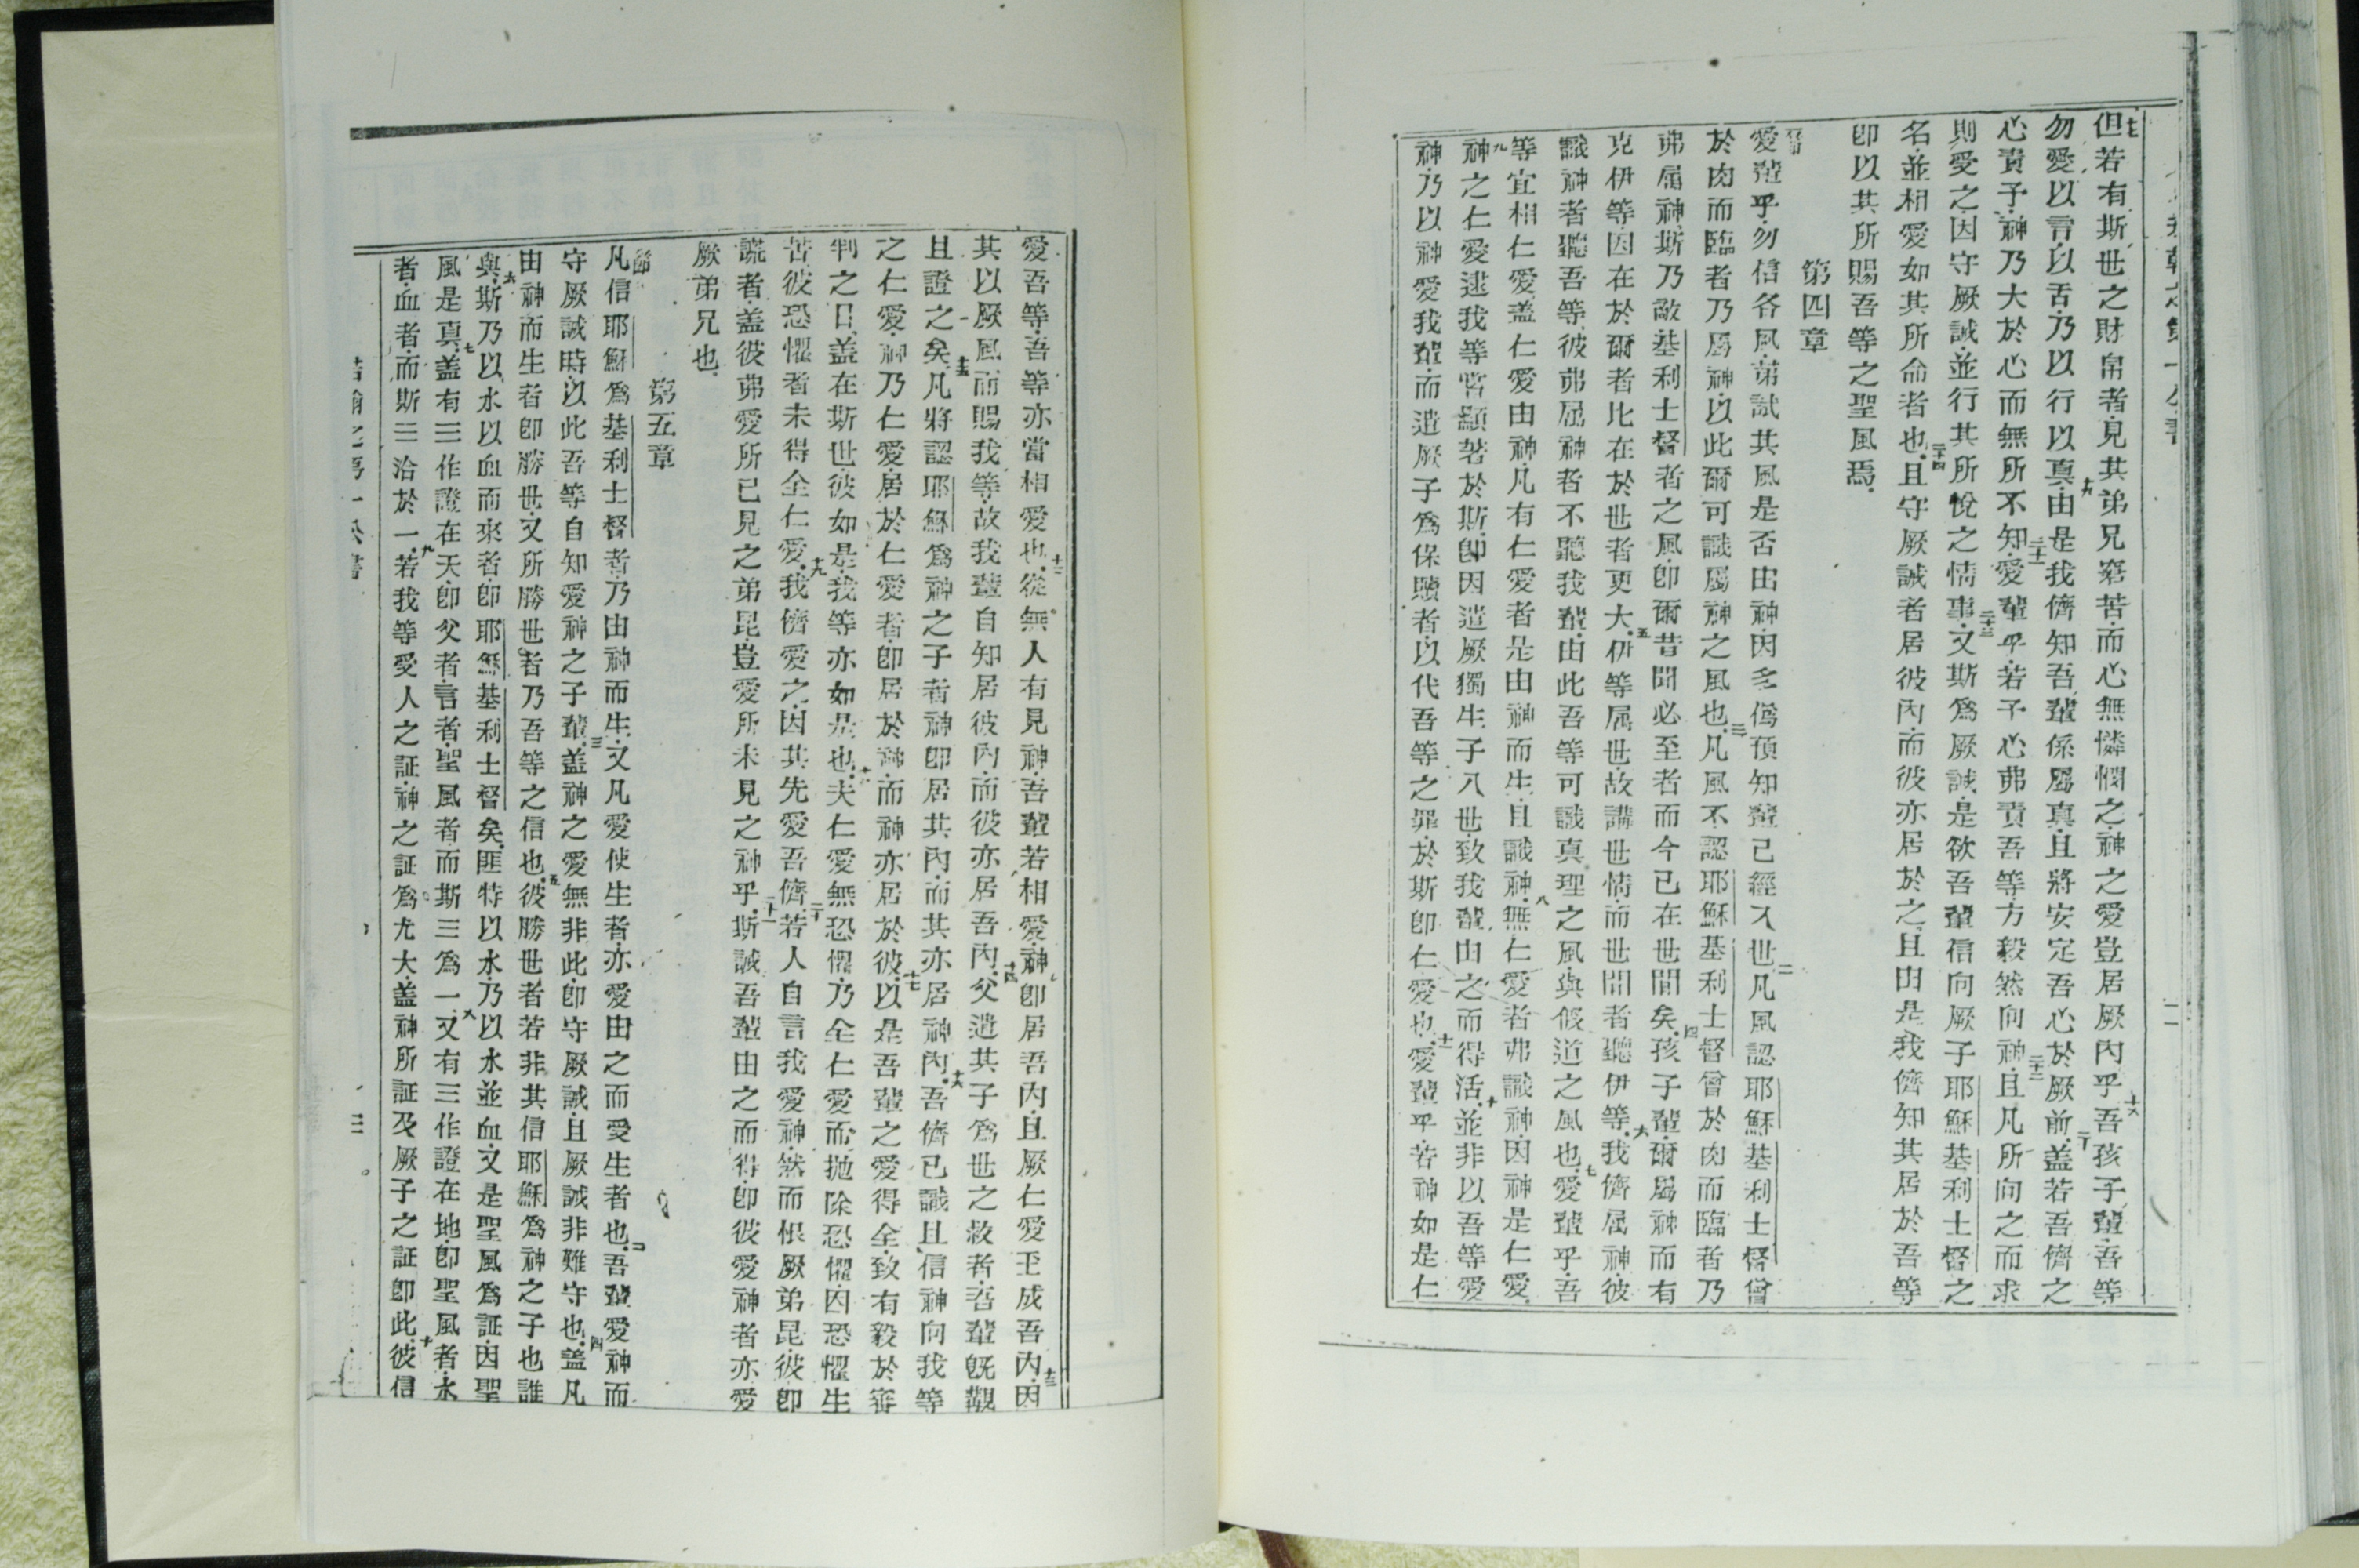 但若有斯世之財帛者見其弟兄窘苦而心無憐憫之神之愛豈居厥內乎十八吾孩子輩吾等
勿愛以言以舌乃以行以真十九由是我儕知吾輩係屬真且將安定吾心於厥前二十盖若吾儕之
心責予神乃大於心而無所不知二十一愛輩乎若予心弗責吾等方毅然向神二十二且凡所向之而求
則受之因守厥誡並行其所悅之情事二十三又斯為厥誡是欲吾輩信向厥子耶穌基利士督之
名並相愛如其所命者也二十四且守厥誡者居彼內而彼亦居於之且由是我儕知其居於吾等
卽以其所賜吾等之聖風焉
第四章
愛輩乎勿信各風第試其風是否由神因多偽預知輩已經入世二凡風認耶穌基利士督曾
於肉而臨者乃屬神以此爾可識屬神之風也三凡風不認耶穌基利士督曾於肉而臨者乃
弗屬神斯乃敵基利士督者之風卽爾昔聞必至者而今已在世間矣四孩子輩爾屬神而有
克伊等因在於爾者比在於世者更大五伊等屬世故講世情而世間者聽伊等六我儕屬神彼
識神者聽吾等彼弗屬神者不聽我輩由此吾等可識真理之風與假道之風也七愛輩乎吾
等宜相仁愛盖仁愛由神凡有仁愛者是由神而生且識神八無仁愛者弗識神因神是仁愛
九神之仁愛逮我等嘗顯著於斯卽因遣厥獨生子入世致我輩由之而得活十並非以吾等愛
神乃以神愛我輩而遣厥子為保贖者以代吾等之罪於斯卽仁愛也十一愛輩乎若神如是仁
愛吾等吾等亦當相愛也十二從無人有見神吾輩若相愛神卽居吾內且厥仁愛玉成吾內十三因
其以厥風而賜我等故我輩自知居彼內而彼亦居吾內十四父遣其子為世之救者吾輩旣觀
且證之矣十五凡將認耶穌為神之子者神卽居其內而其亦居神內十六吾儕已識且信神向我等
之仁愛神乃仁愛居於仁愛者卽居於神而神亦居於彼十七以是吾輩之愛得全致有毅於審
判之日盖在斯世彼如是我等亦如是也十八夫仁愛無恐懼乃全仁愛而拋除恐懼因恐懼生
苦彼恐懼者未得全仁愛十九我儕愛之因其先愛吾儕二十若人自言我愛神然而恨厥弟昆彼卽
謊者盖彼弗愛所已見之弟昆豈愛所未見之神乎二十一斯誡吾輩由之而得卽彼愛神者亦愛
厥弟兄也
第五章
凡信耶穌為基利士督者乃由神而生又凡愛使生者亦愛由之而愛生者也二吾輩愛神而
守厥誡時以此吾等自知愛神之子輩三盖神之愛無非此卽守厥誡且厥誡非難守也四盖凡
由神而生者卽勝世又所勝世者乃吾等之信也五彼勝世者若非其信耶穌為神之子也誰
與六斯乃以水以血而來者卽耶穌基利士督矣匪特以水乃以水並血又是聖風為証因聖
風是真七盖有三作證在天卽父者言者聖風者而斯三為一八又有三作證在地卽聖風者水
者血者而斯三洽於一九若我等受人之証神之証為尤大盖神所証及厥子之証卽此十彼信